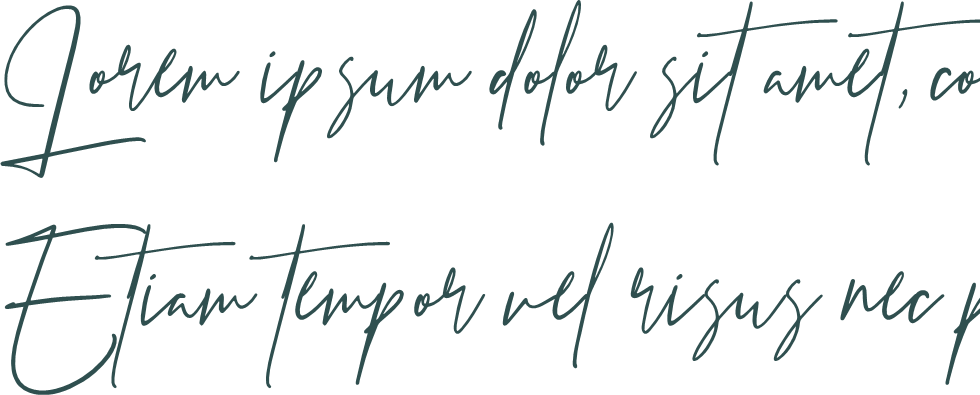 Lorem ipsum dolor sit amet, co
Etiam tempor vel risus nec p